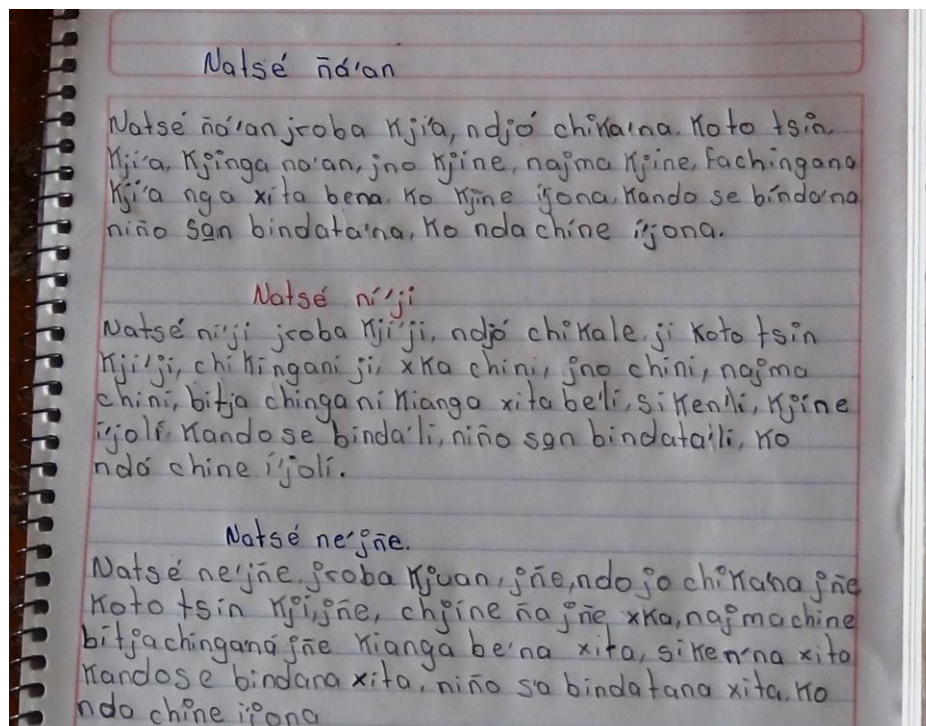 Natsé ñá'an
Natsé ñá'an jroba kji'a, ndjó chika'na. Koto tsin
kji'a, kjinga na'an, jno kjine, najma kjine, fachingana
kji'a nga xita bena. Ko kjine ijona, kando se bínda'na
niño san bindata'na, ko nda chine i'jona.
Natsé ní'ji
Natsé ni'ji jroba kji'ji, ndjó chikale, ji koto tsin
kji'ji, chikingani ji, xka chini, jno chini, najma
chini, bitja chingani kianga xita be'li, siken'li, kjine
i'joli, kando se binda'li, niño san bindatai'li, ko
ndá chine i'joli.
Natsé ne'jñe.
Natsé ne'jñe, jroba kjuan, jñe, ndo jo chikana jñe
koto tsin kji, jñe, chjine ña jñe xka, najma chine
bitjachinganá jñe kianga be'na xita, siken'na xita
kando se bindana xita, niño sa bindatana xita, ko
ndo chine ijona